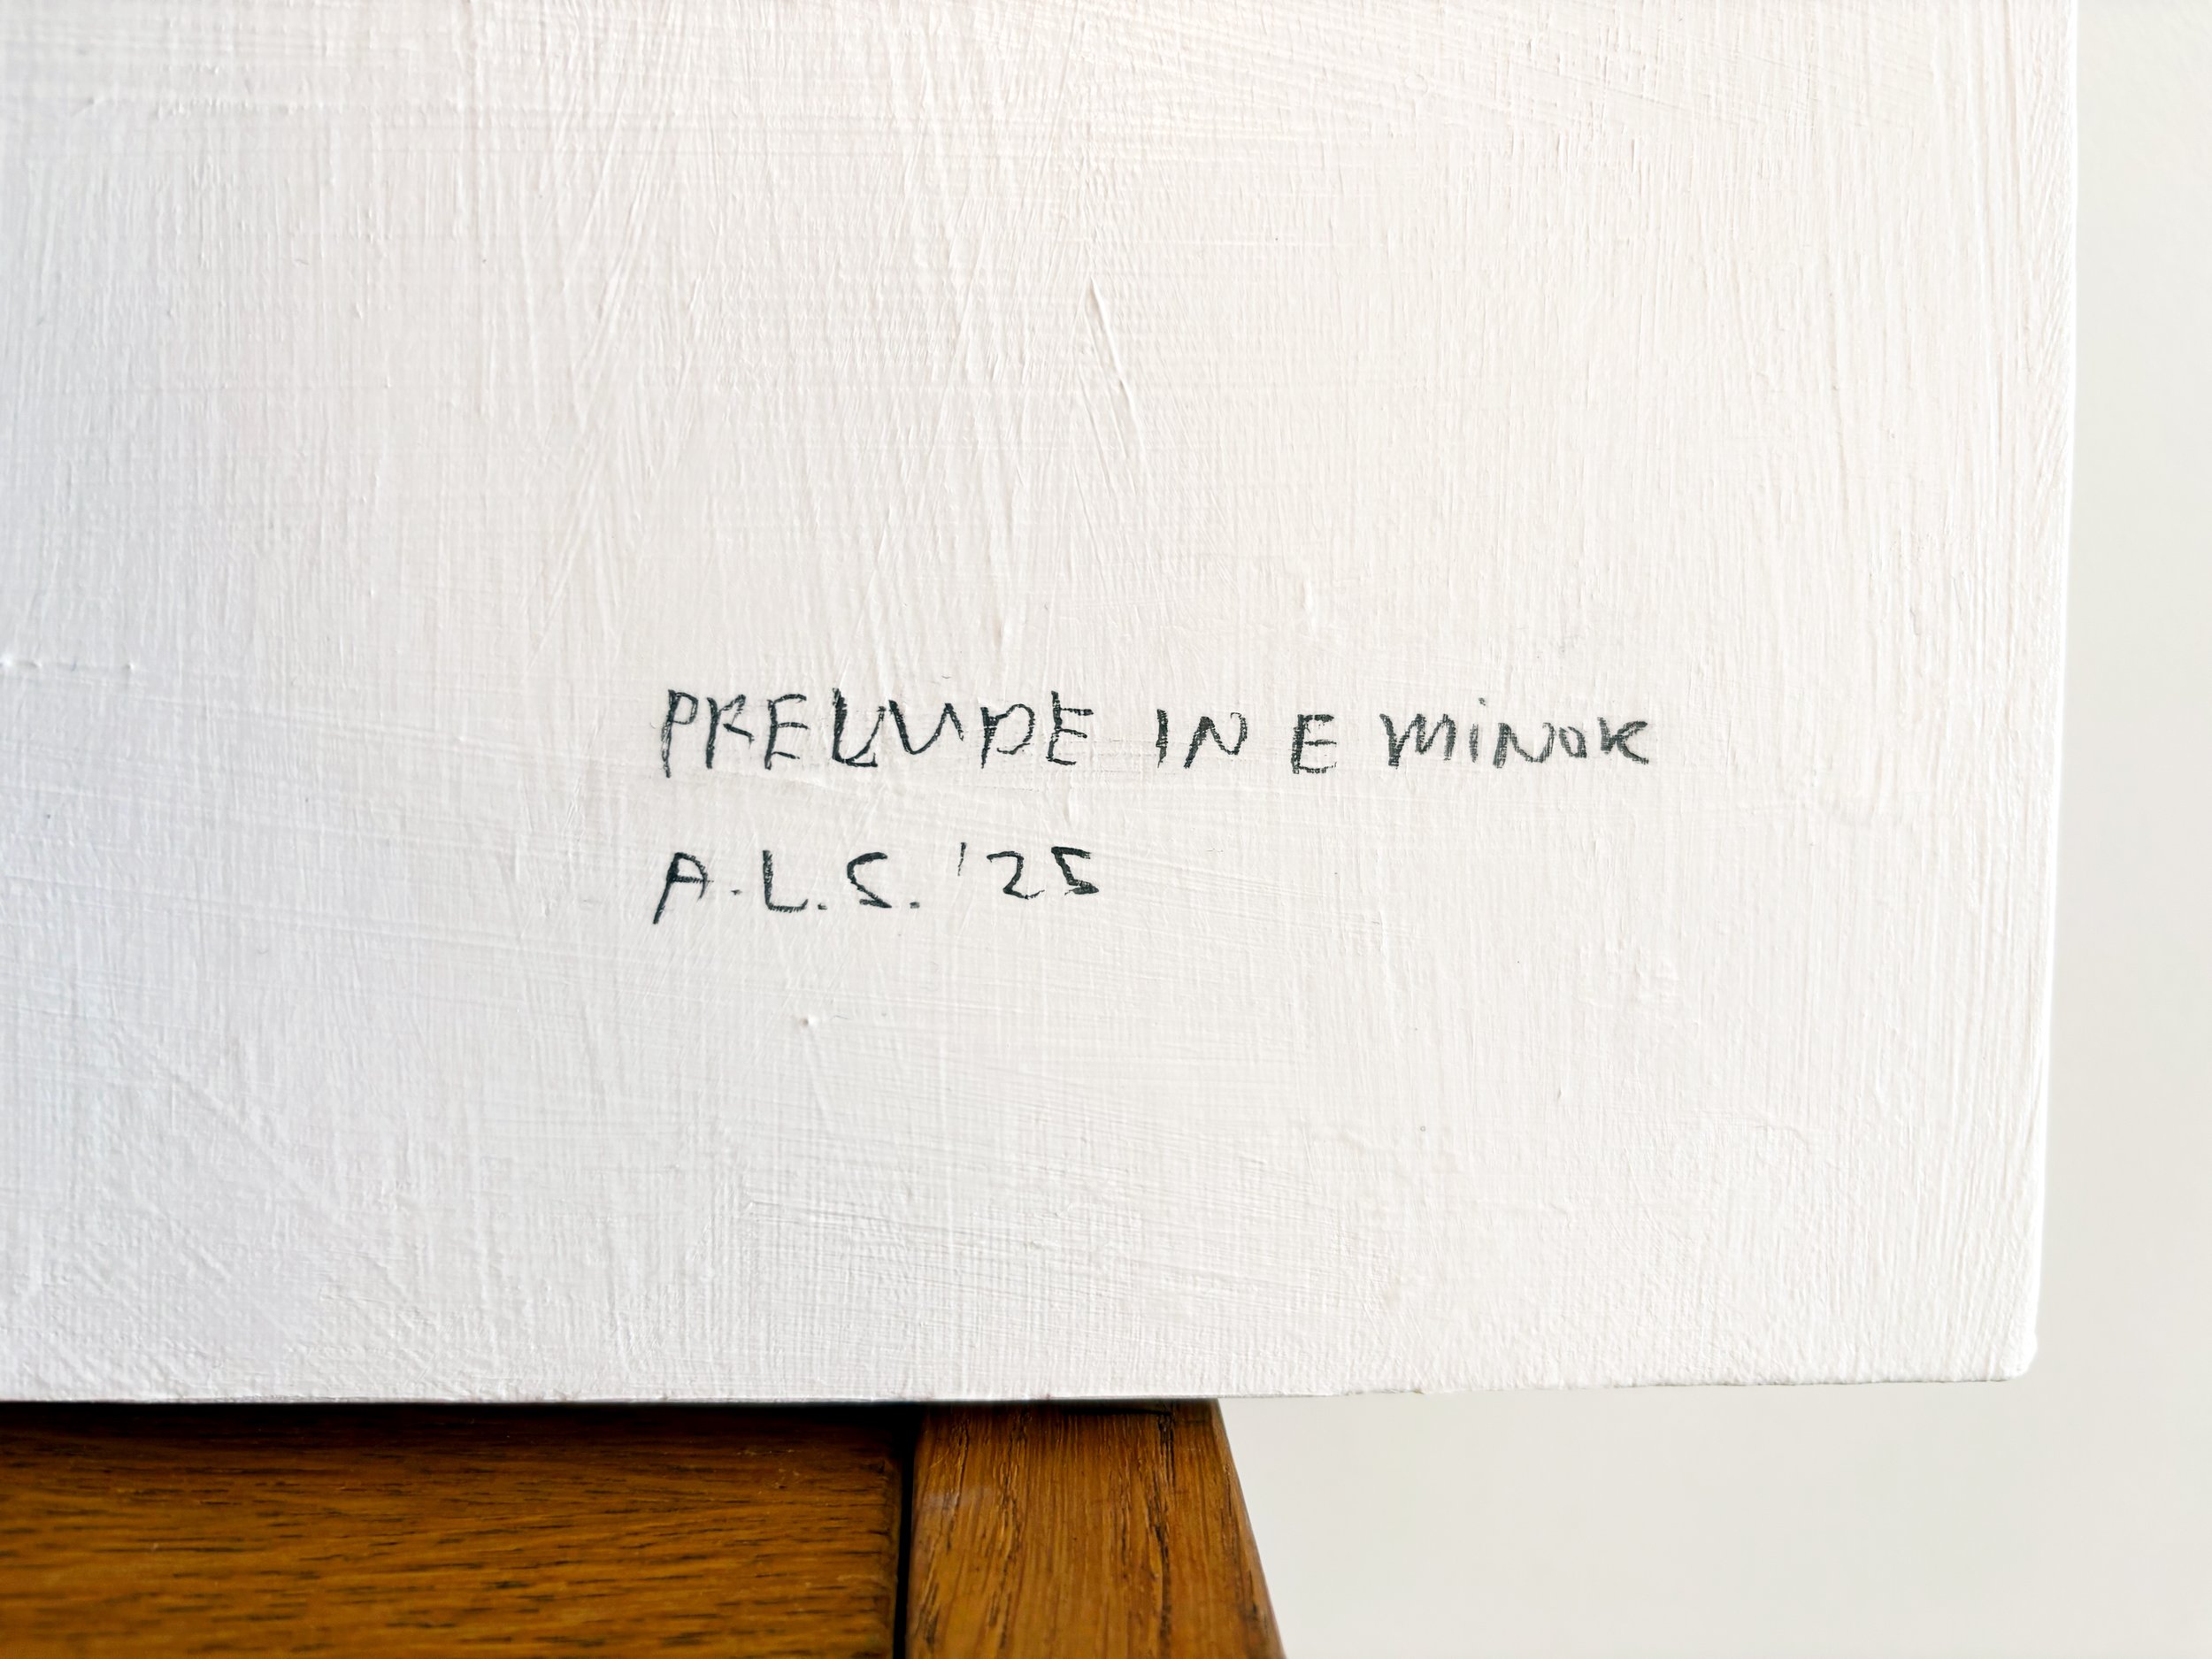 PRELUDE IN E MiNOR
A.L.S. '25